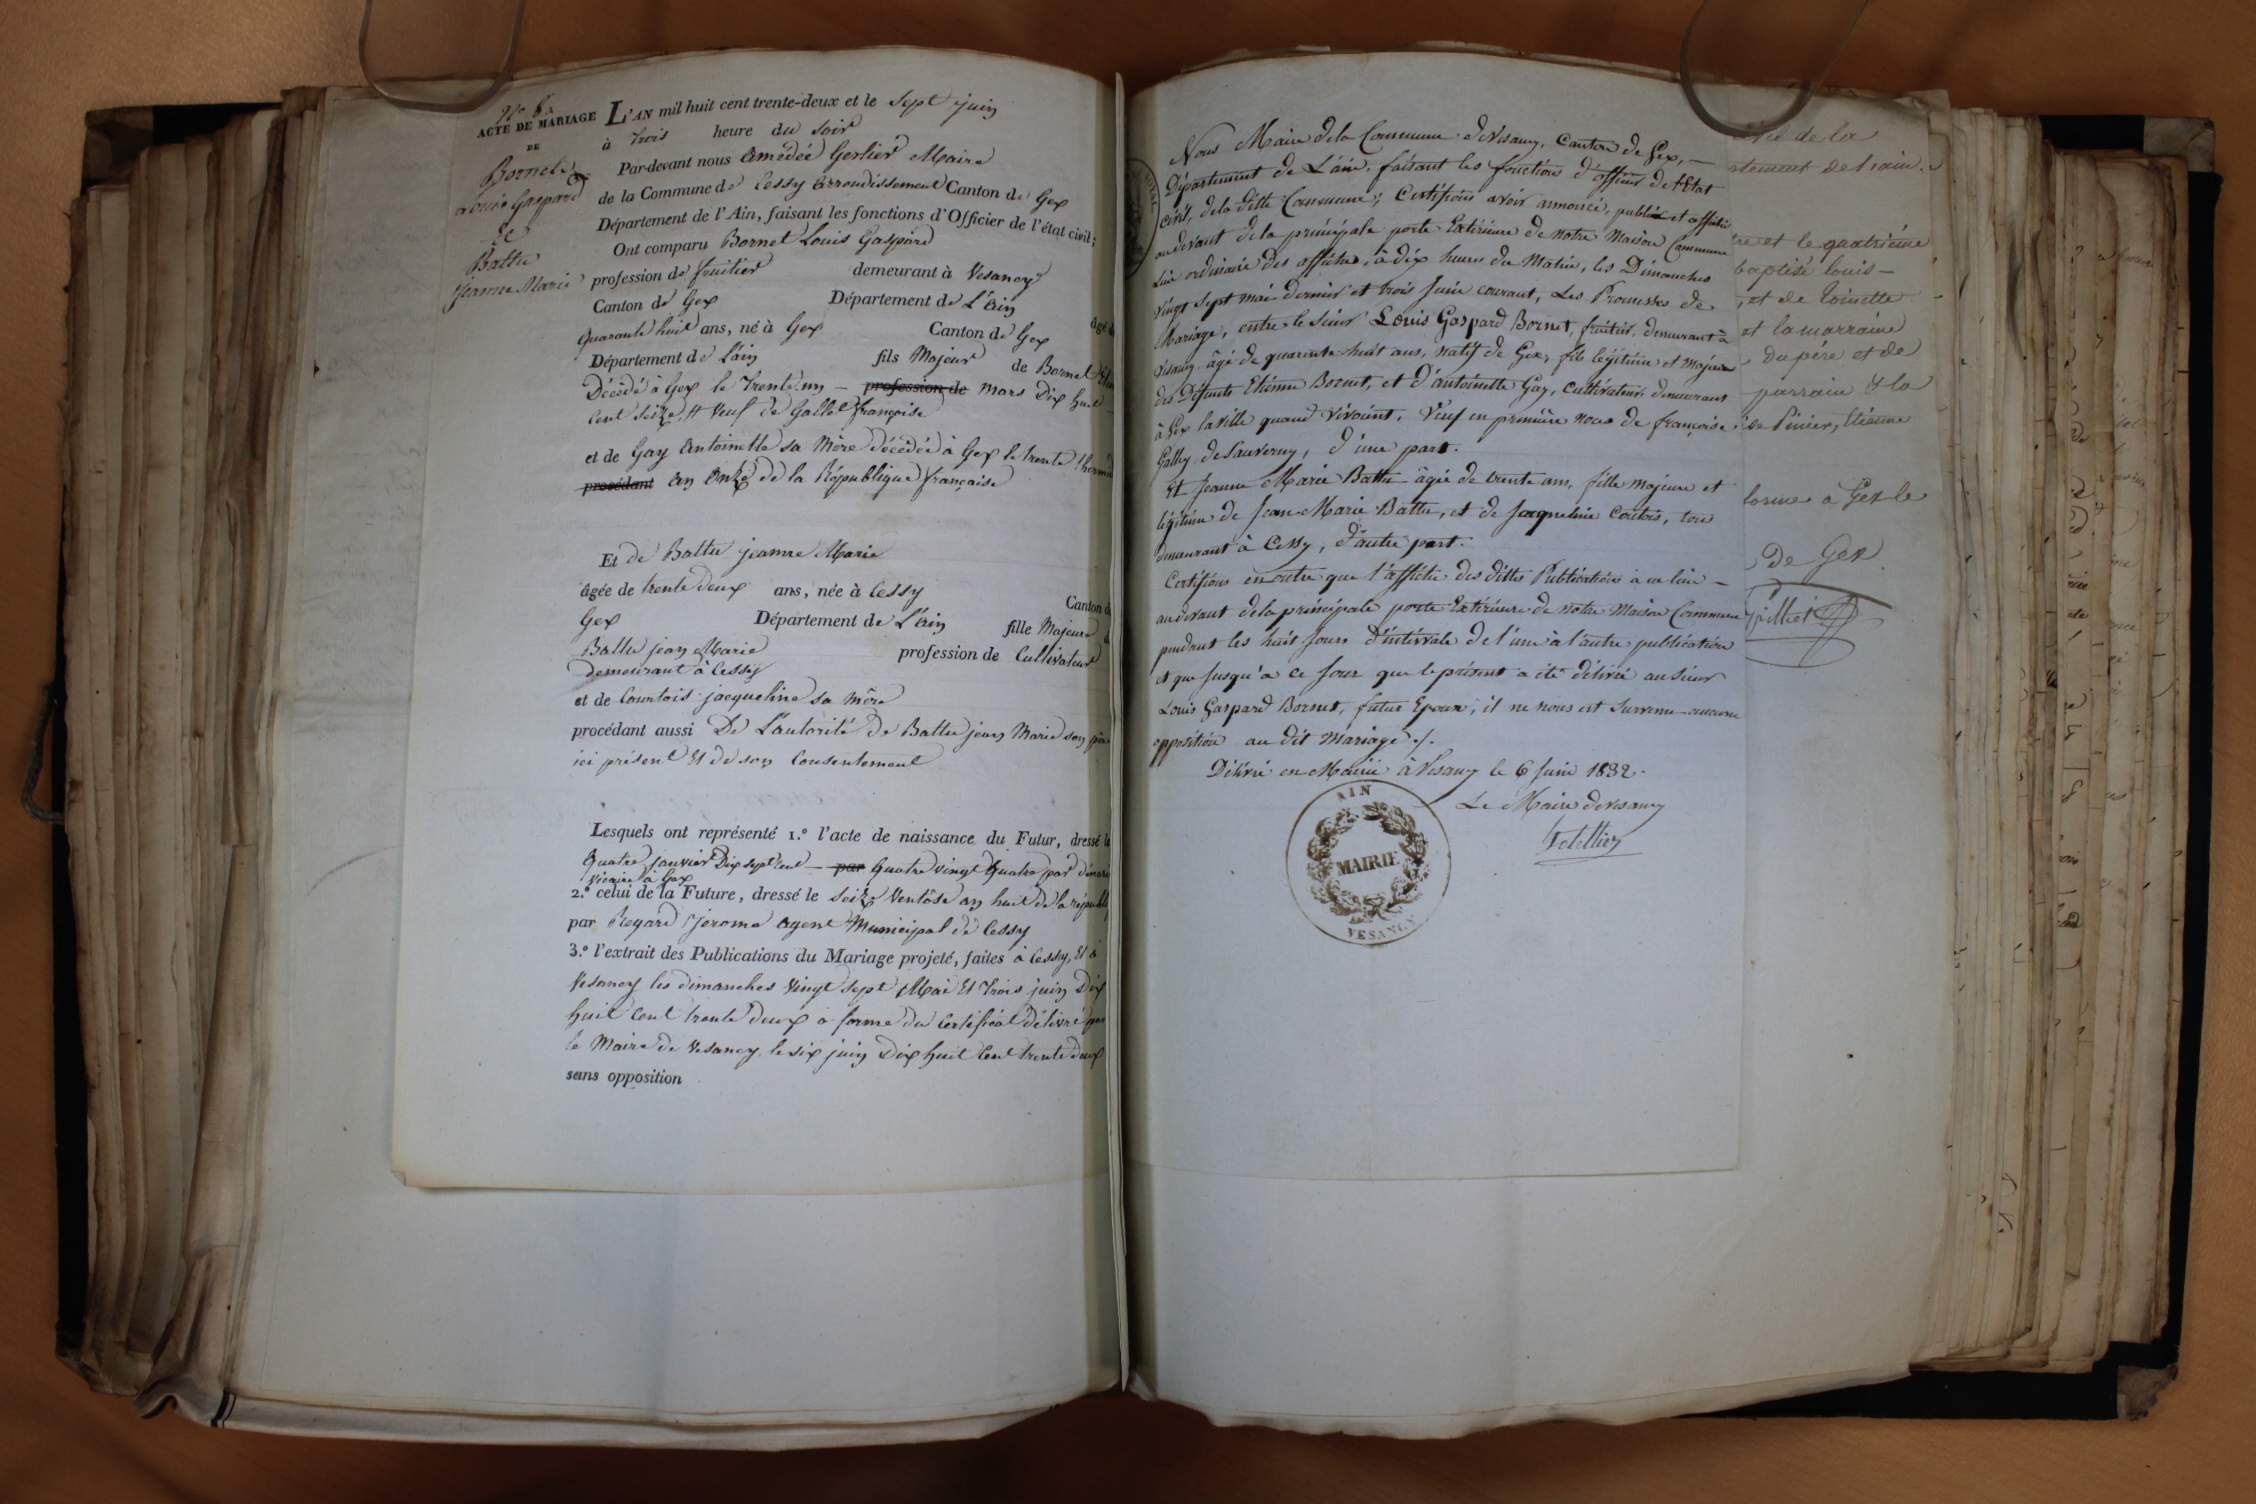 N.º 6.
ACTE DE MARIAGE
DE
Bornet
Louis Gaspard
Et
Battu
Jeanne Marie
L'AN mil huit cent trente-deux et le sept juin
à trois heure du soir
Par-devant nous Amédée Gerlier Maire
de la Commune de Cessy arrondissement Canton de Gex
Département de l'Ain, faisant les fonctions d'Officier de l'état civil;
Ont comparu Bornet Louis Gaspard
profession de fruitier demeurant à Vesancy
Canton de Gex Département de L'ain âgé
quarante huit ans, né à Gex Canton de Gex
Département de L'ain fils Majeur de Bornet
Décédé à Gex le trente un — profession de mars Dix huit
Cent seize, # Veuf de Gallet françoise
et de Gay Antoinette sa Mère décédée à Gex le trente
procédant an Onze de la République française
Et de Battu jeanne Marie
âgée de trente deux ans, née à Cessy Canton
Gex Département de L'ain fille Majeure
Battu jean Marie profession de Cultivateur
demeurant à Cessy
et de Courtois jacqueline sa mère
procédant aussi De L'autorité de Battu jean Marie son
ici présent Et de son Consentement
Lesquels ont représenté 1.º l'acte de naissance du Futur, dressé
quatre janvier Dix sept Cent — par Quatre vingt Quatre par
Vicaire à Gex
2.º celui de la Future, dressé le seize Ventôse an huit de la
par Regard jerome agent Municipal de Cessy
3.º l'extrait des Publications du Mariage projeté, faites à Cessy, Et à
Vesancy les dimanches vingt sept Mai Et trois juin Dix
huit Cent trente deux a forme du Certificat délivré par
le Maire de Vesancy le six juin Dix huit Cent trente deux
sans opposition
Nous Maire de la Commune de Vesancy, Canton de Gex, —
Département de L'ain, faisant les fonctions d'officier de l'Etat
civil, de la ditte Commune; Certifions avoir annoncé, publié et affiché
au devant de la principale porte Extérieure de notre Maison Commune
Lieu ordinaire des affiches, à dix heures du Matin, les Dimanches
vingt sept mai dernier et trois Juin courant, Les Promesses de
Mariage, entre le sieur Louis Gaspard Bornet, fruitier, demeurant à
Vesancy, âgé de quarante huit ans, natif de Gex, fils légitime et majeur
des Défunts Etienne Bornet, et d'antoinette Gay, cultivateurs demeurant
à Gex la ville quand vivaient, Veuf en première noce de françoise
Gallay de Sauverny, d'une part.
Et Jeanne Marie Battu âgée de trente ans, fille majeure et
légitime de Jean-Marie Battu, et de Jaqueline Coutois, tous
demeurant à Cessy, d'autre part.
Certifions en outre que l'affiche des dittes Publications a eu lieu —
au devant de la principale porte Extérieure de notre Maison Commune
pendant les huit Jours d'intervale de l'une à l'autre publication
et que Jusqu'a ce Jour que le présent a été délivré au sieur
Louis Gaspard Bornet, futur Epoux, il ne nous est survenu aucune
opposition au dit Mariage ./.
Délivré en Mairie à Vesancy le 6 Juin 1832.
Le Maire de Vesancy
AIN
MAIRIE
VESANCY
de la
tement de l'ain.
et le quatrième
baptisé louis —
et de toinette
et la marraine
du père et de
parrain & la
Etienne
forme a Gex le
De Gex